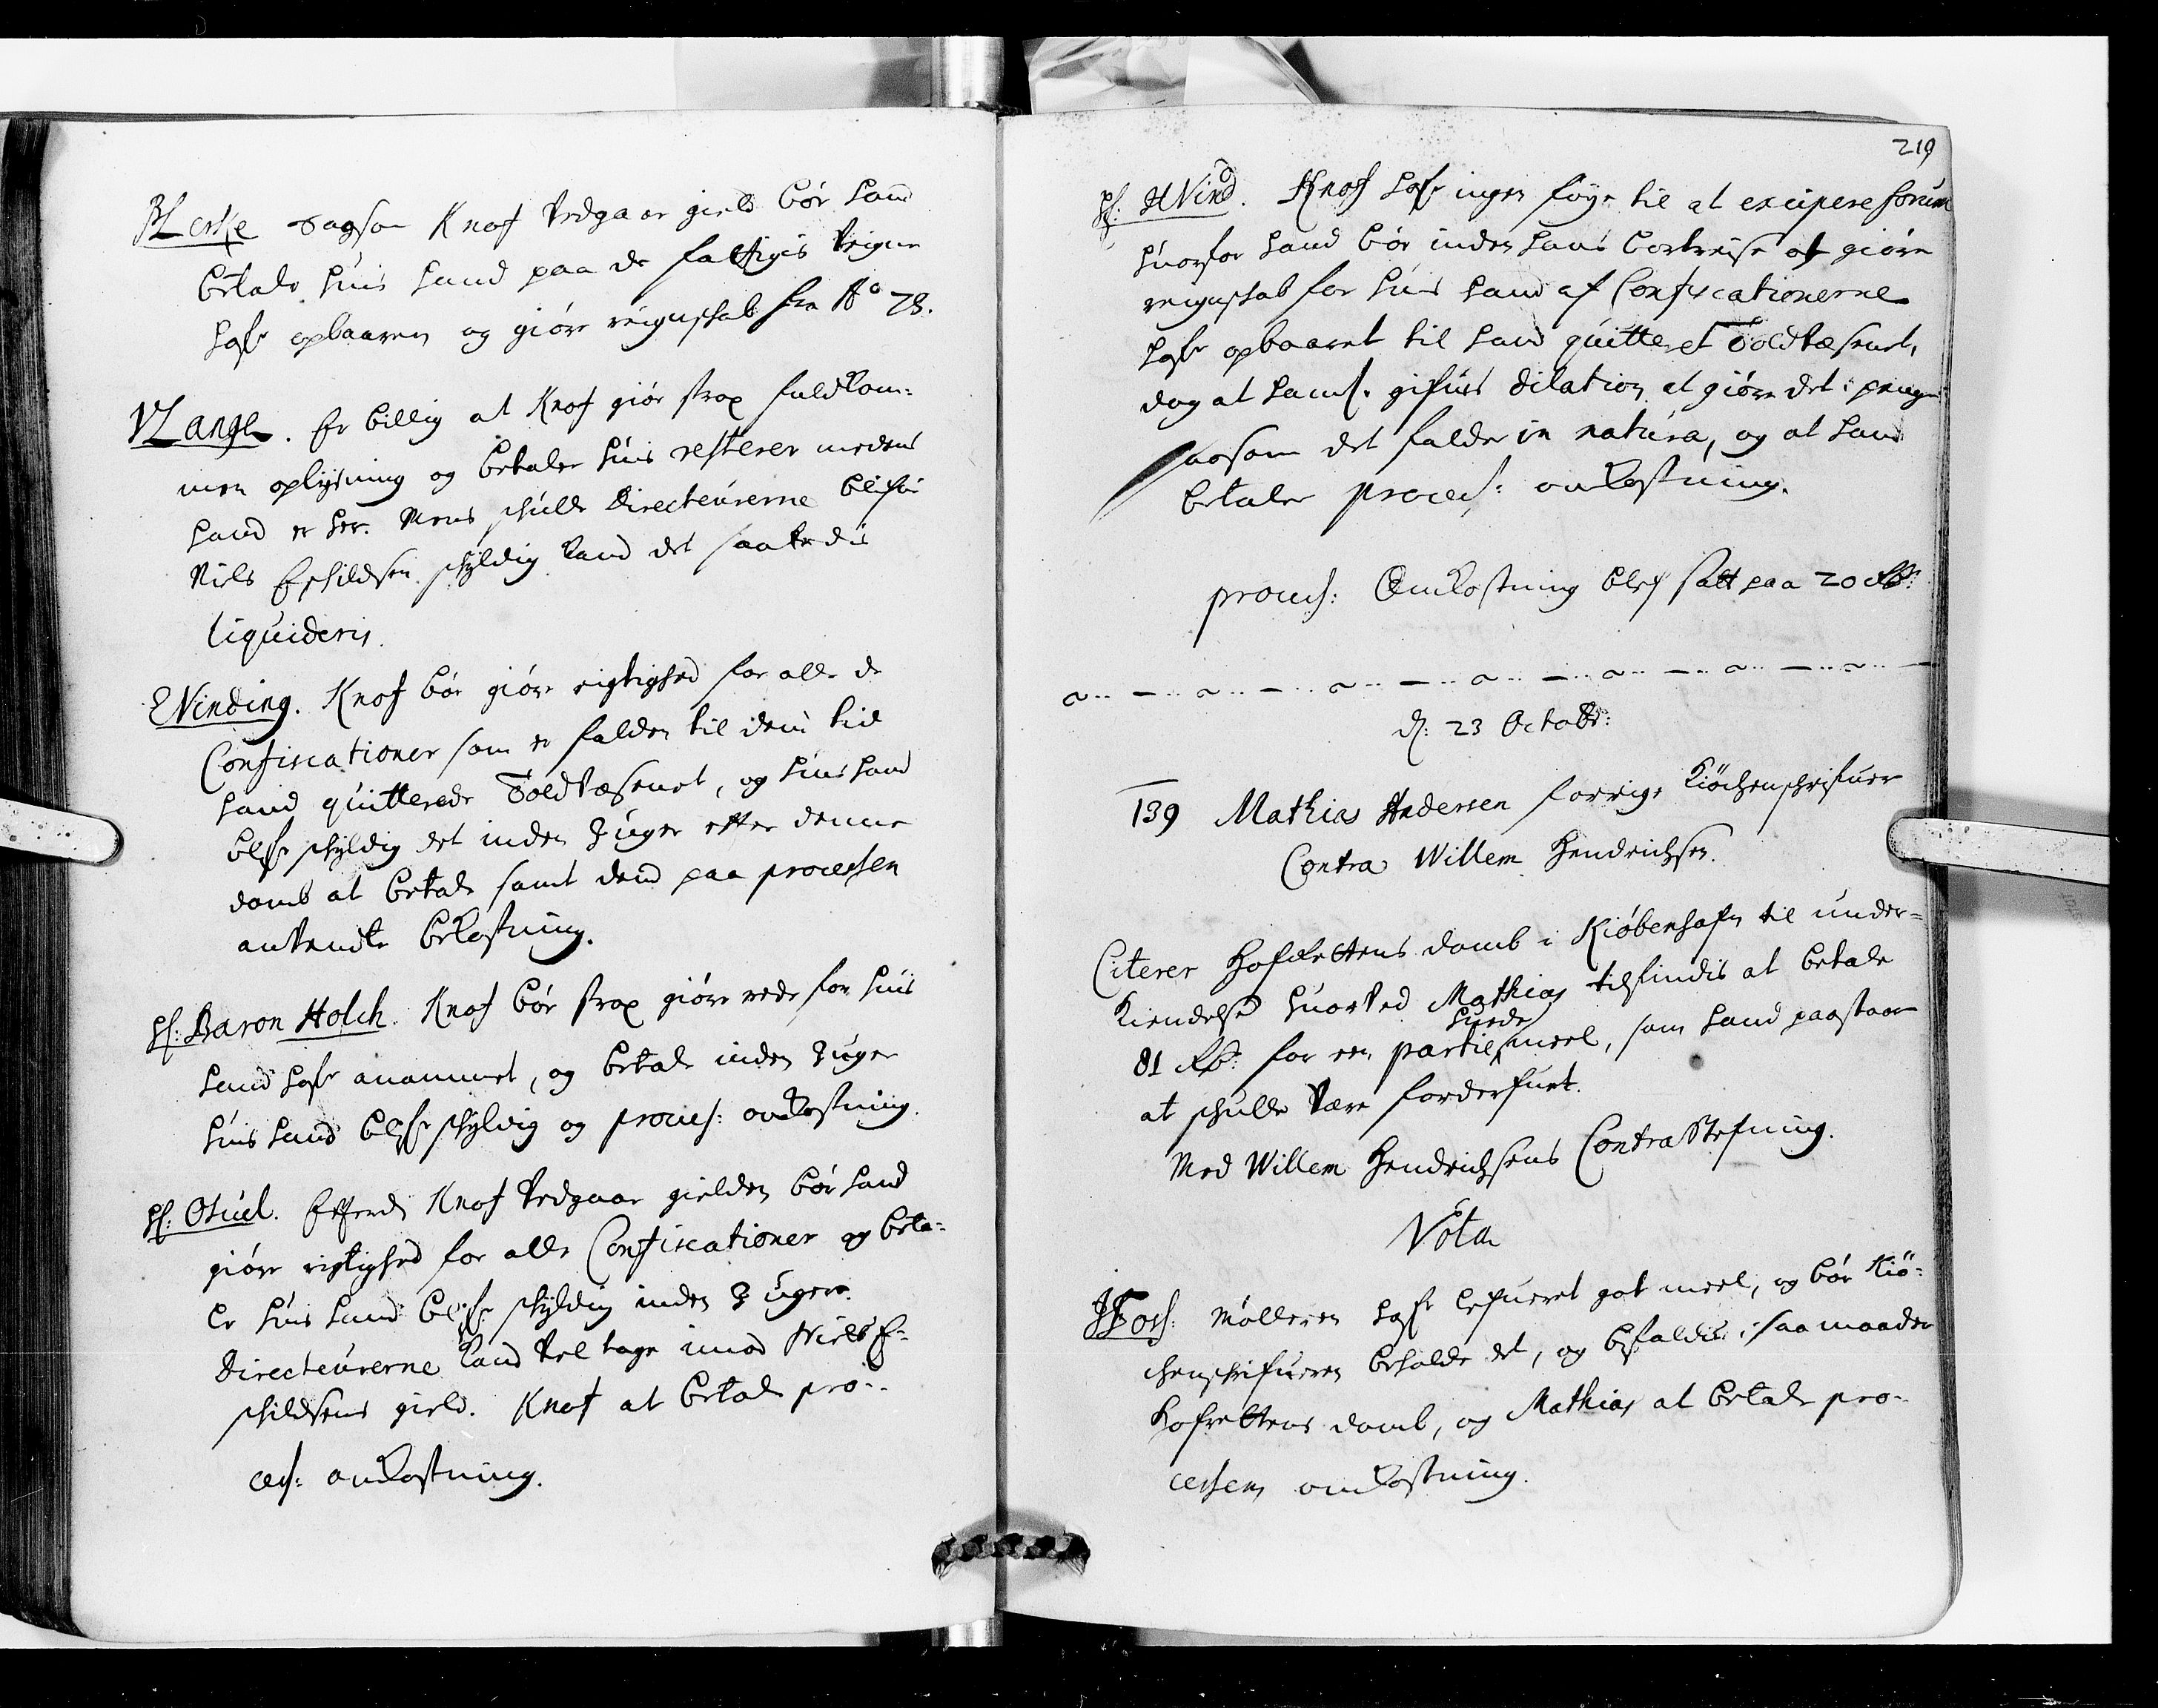 BLerke Dagson Knof Vedgaar gield bør hand
betale huis hand paa de fattigis Veigne
hafr opbaaren og giøre reignschab fra Ao 78.
VLange. Er billig at Knof giør strax fuldkom-
men oplysning og betaler huis resterer medens
hand er her. Mens schulle Directeurerne blifue
Niels Eschildsen schyldig kand det saaledis
liquideris.
EVinding. Knof bør giøre rigtighed for alle de
Confiscationer som er falden til dend tid
hand quitterede Toldvæsenet, og huis hand
blifr schyldig det inden 3 uger efter denne
domb at betale samt dend paa processen
anvendte bekostning.
H: Baron Holch. Knof bør strax giøre rede for huis
hand hafr anammet, og betale inden 3 uger
huis hand blifr schyldig og process: omkostning.
H: OJuel. Efterdj Knof Vedgaar gielden bør hand
giøre rigtighed for alle Confiscationer og beta-
le huis hand blifr schyldig inden 3 ugers.
Directeurerne kand vel tage imod Niels E-
schildsens gield. Knof at betale pro-
cess: omkostning.
219
H: HVind. Knof hafr ingen føye til at excipere forum
huorfor hand bør inden hans bortreise at giøre
reignschab for huis hand af Confiscationerne
hafr opbaaret til hand quitteret Toldvæsenet,
dog at ham f. gifues dilation at giøre det i penge
saasom det falder in natura, og at hand
betaler process: omkostning.
process: Omkostning blef satt paa 20 Rdr:
d: 23 Octobr:
139 Mathias Andersen forrige Kiöchenschrifuer
Contra Willem Hendrichsen.
Citerer Hofrettens domb i Kiøbenhafn til under-
kiendelse huorved Mathias tilfindis at betale
81 Rdr: for en partie huede meel, som hand paastaar
at schulle være forderfuet.
Med Willem Hendrichsens ContraStefning.
Vota
JFoss: Mølleren hafr lefueret got meel, og bør Kiö-
chenschrifueren beholde det, og befaldis i saa maader
Hofrettens domb, og Mathias at betale pro-
cessens omkostning.